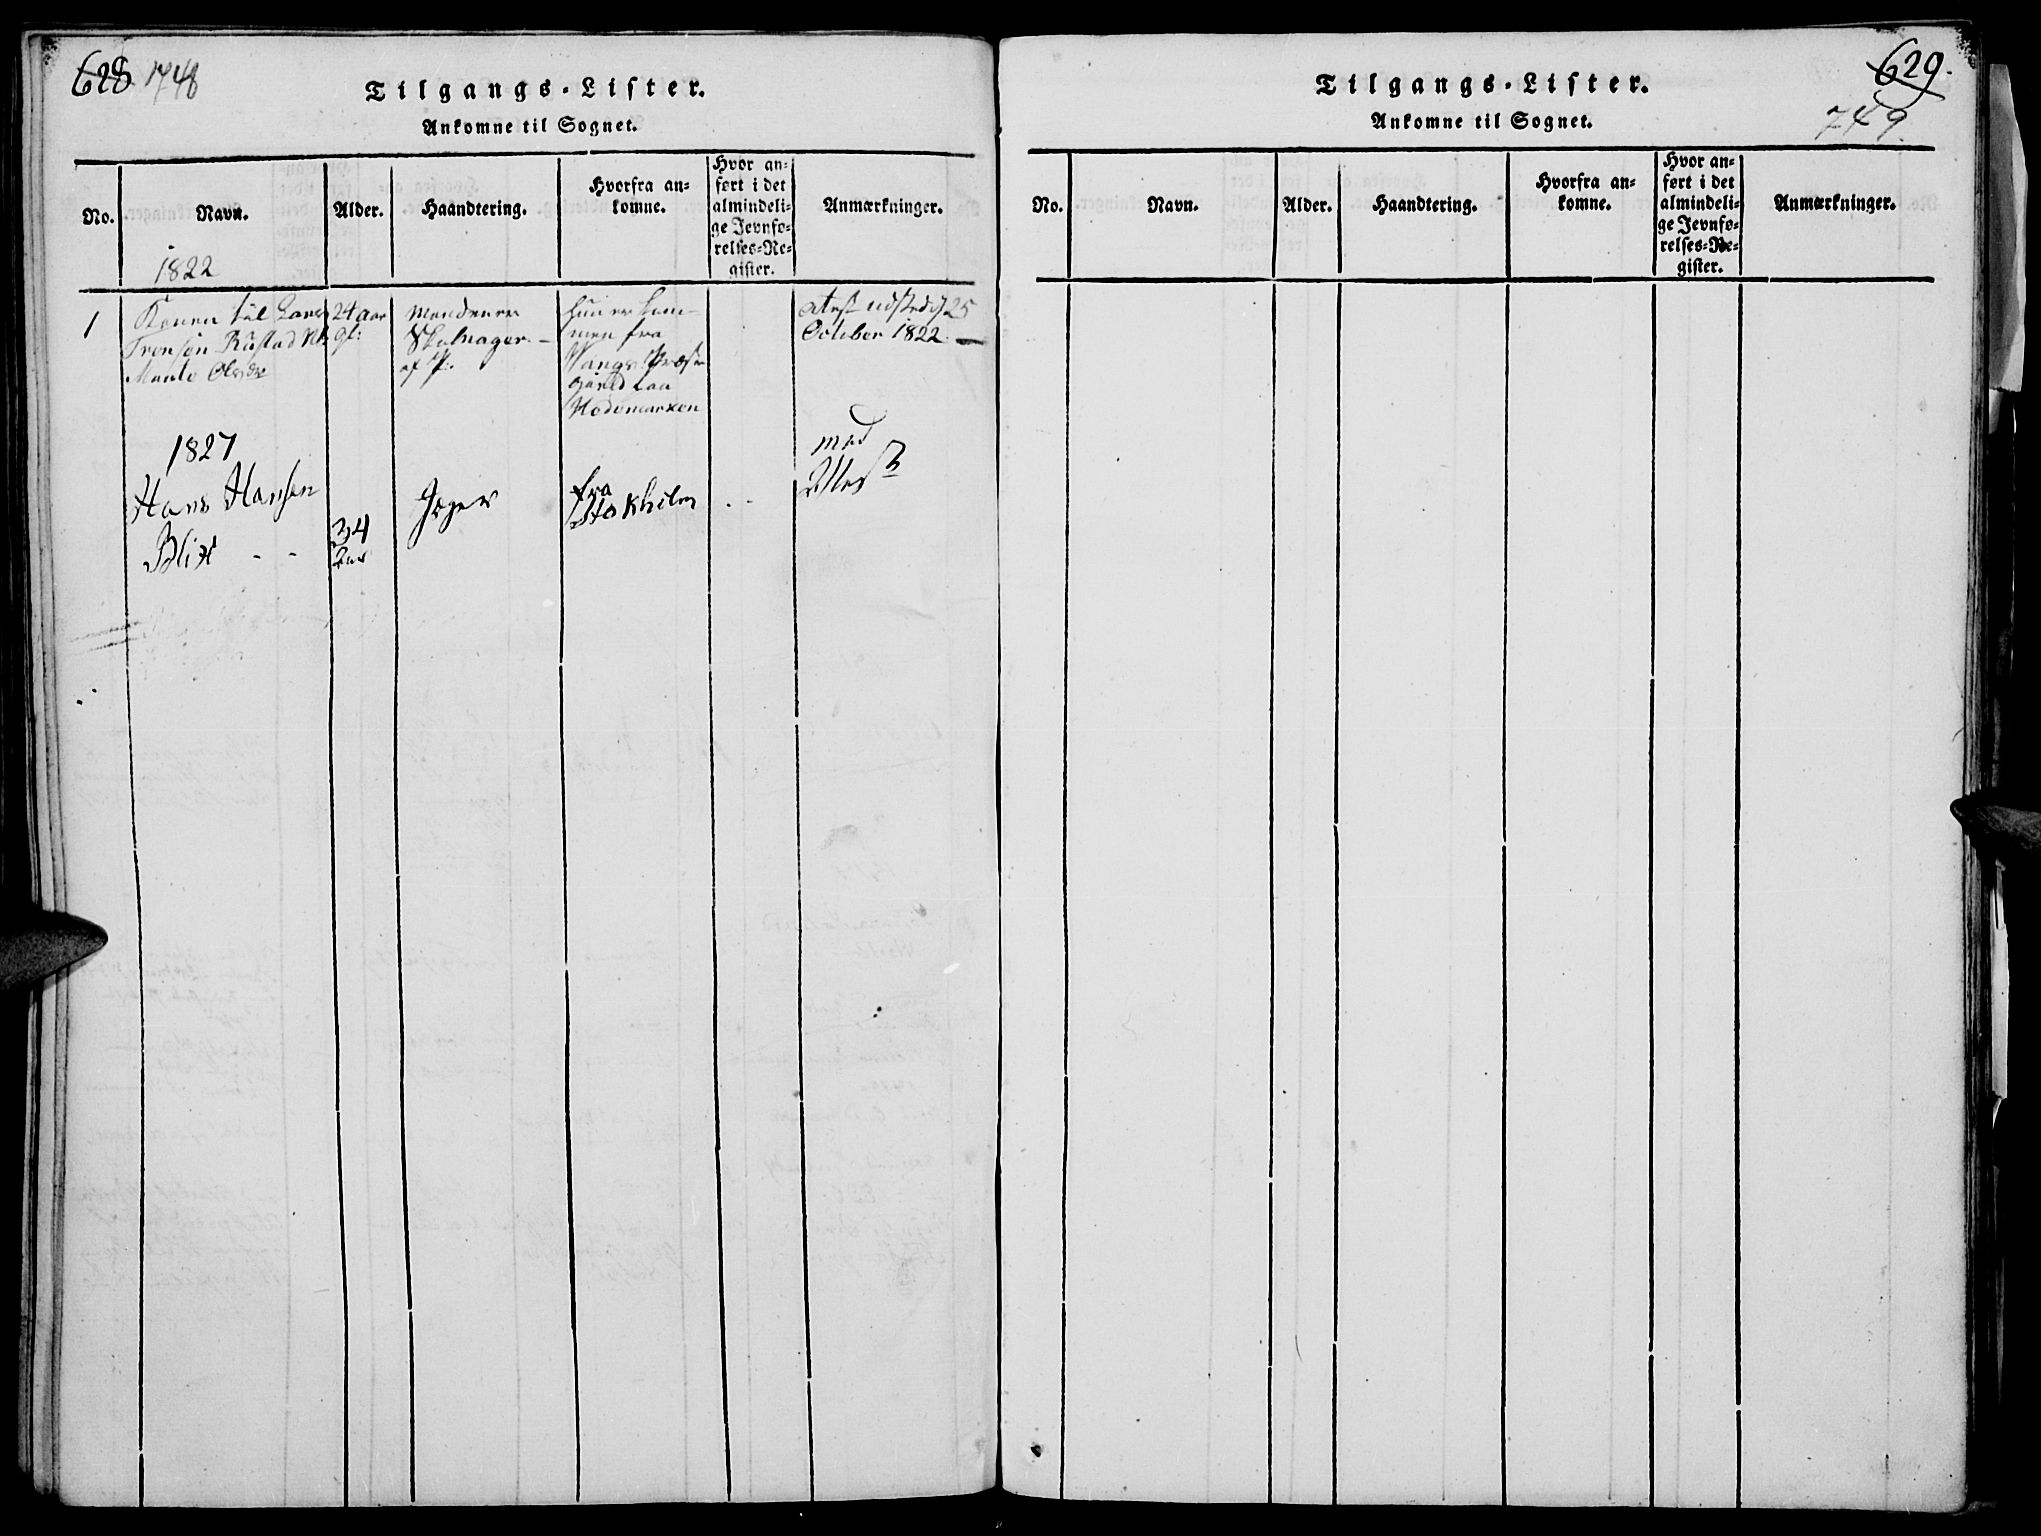 628 1748
Tilgangs-Lister.
Ankomne til Sognet.
No.
Navn.
Alder.
Haandtering.
Hvorfra an-
komne.
Hvor an-
ført i det
almindeli-
ge Jevnfø-
relses-Re-
gister.
Anmærkninger.
1822
1
Konen til Lars
Tronsen Rustad
24 Aar
gl:
Manden er
af P.
hun er kom-
men fra
Vangs Præste
gield paa
Hedemarken
Atest udstedt d 25
October 1822
1827
Hans Hansen
Blix - -
34
Aar
Jæger
fra
Stokholm
- -
med
Attest
629.
749.
Tilgangs-Lister.
Ankomne til Sognet.
No.
Navn.
Alder.
Haandtering.
Hvorfra an-
komne.
Hvor an-
ført i det
almindeli-
ge Jevnfø-
relses-Re-
gister.
Anmærkninger.